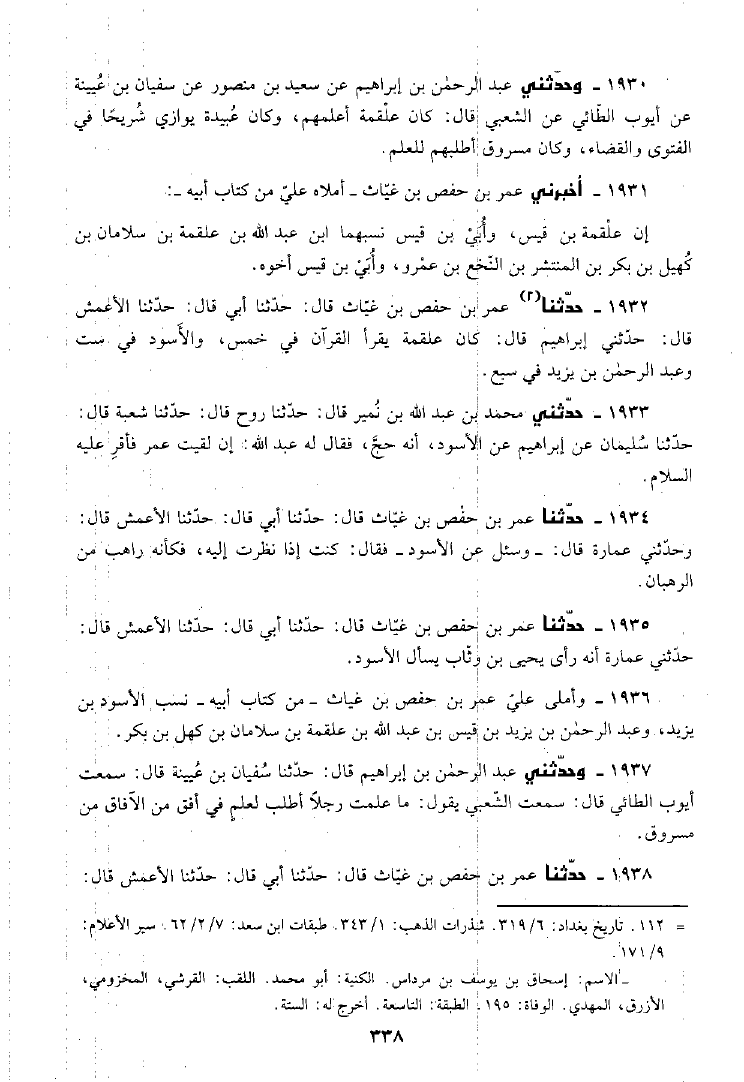 ١٩٣٠ - وحدّثني عبد الرحمٰن بن إبراهيم عن سعيد بن منصور عن سفيان بن عُيينة
عن أيوب الطّائي عن الشعبي قال: كان علْقمة أعلمهم، وكان عُبيدة يوازي شُريحًا في
الفتوى والقضاء، وكان مسروق أطلبهم للعلم.
١٩٣١ - أخبرني عمر بن حفص بن غيّاث - أملاه عليّ من كتاب أبيه -:
إن علْقمة بن قيس، وأُبَيْ بن قيس نسبهما ابن عبد الله بن علقمة بن سلامان بن
كُهيل بن بكر بن المنتشر بن النّخع بن عمْرو، وأُبَيْ بن قيس أخوه.
١٩٣٢ - حدّثنا(٢) عمر بن حفص بن غيّاث قال: حدّثنا أبي قال: حدّثنا الأعمش
قال: حدّثني إبراهيم قال: كان علقمة يقرأ القرآن في خمس، والأَسود في ست
وعبد الرحمٰن بن يزيد في سبع.
١٩٣٣ - حدّثني محمد بن عبد الله بن نُمير قال: حدّثنا روح قال: حدّثنا شعبة قال:
حدّثنا سُليمان عن إبراهيم عن الأسود، أنه حجَّ، فقال له عبد الله: إن لقيت عمر فأقرِ عليه
السلام.
١٩٣٤ - حدّثنا عمر بن حفْص بن غيّاث قال: حدّثنا أبي قال: حدّثنا الأعمش قال:
وحدّثني عمارة قال: - وسئل عن الأسود - فقال: كنت إذا نظرت إليه، فكأنه راهب من
الرهبان.
١٩٣٥ - حدّثنا عمر بن حفص بن غيّاث قال: حدّثنا أبي قال: حدّثنا الأعمش قال:
حدّثني عمارة أنه رأى يحيى بن وثّاب يسأل الأسود.
١٩٣٦ - وأملى عليّ عمر بن حفص بن غياث - من كتاب أبيه - نسب الأسود بن
يزيد، وعبد الرحمٰن بن يزيد بن قيس بن عبد الله بن علقمة بن سلامان بن كهل بن بكر.
١٩٣٧ - وحدّثني عبد الرحمٰن بن إبراهيم قال: حدّثنا سُفيان بن عُيينة قال: سمعت
أيوب الطائي قال: سمعت الشّعبي يقول: ما علمت رجلاً أطلب لعلم في أفق من الآفاق من
مسروق.
١٩٣٨ - حدّثنا عمر بن حفص بن غيّاث قال: حدّثنا أبي قال: حدّثنا الأعمش قال:
= ١١٢. تاريخ بغداد: ٣١٩/٦. شذرات الذهب: ٣٤٣/١. طبقات ابن سعد: ٦٢/٢/٧. سير الأعلام:
١٧١/٩.
- الاسم: إسحاق بن يوسف بن مرداس. الكنية: أبو محمد. اللقب: القرشي، المخزومي،
الأزرق، المهدي. الوفاة: ١٩٥. الطبقة: التاسعة. أخرج له: الستة.
٣٣٨